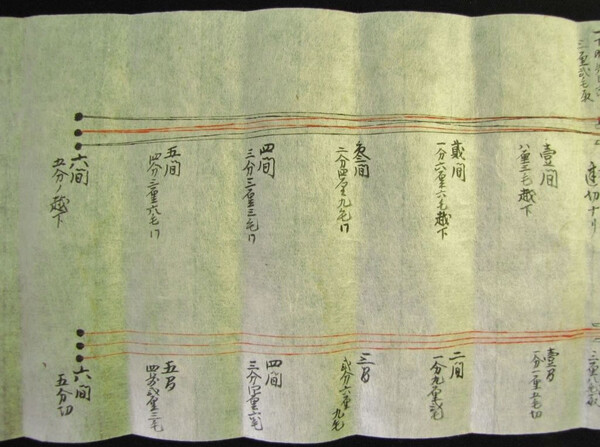 壹間
八厘三毛越下
貳間
一分六厘六毛越下
叄間
二分四厘九毛〃
四間
三分三厘三毛〃
五間
四分二厘六毛〃
六間
五分ノ越下
壹間
一分一厘五毛切
二間
一分九厘弐毛
三間
弐分六厘九毛
四間
三分四厘六毛
五間
四分弐厘三毛
六間
五分切